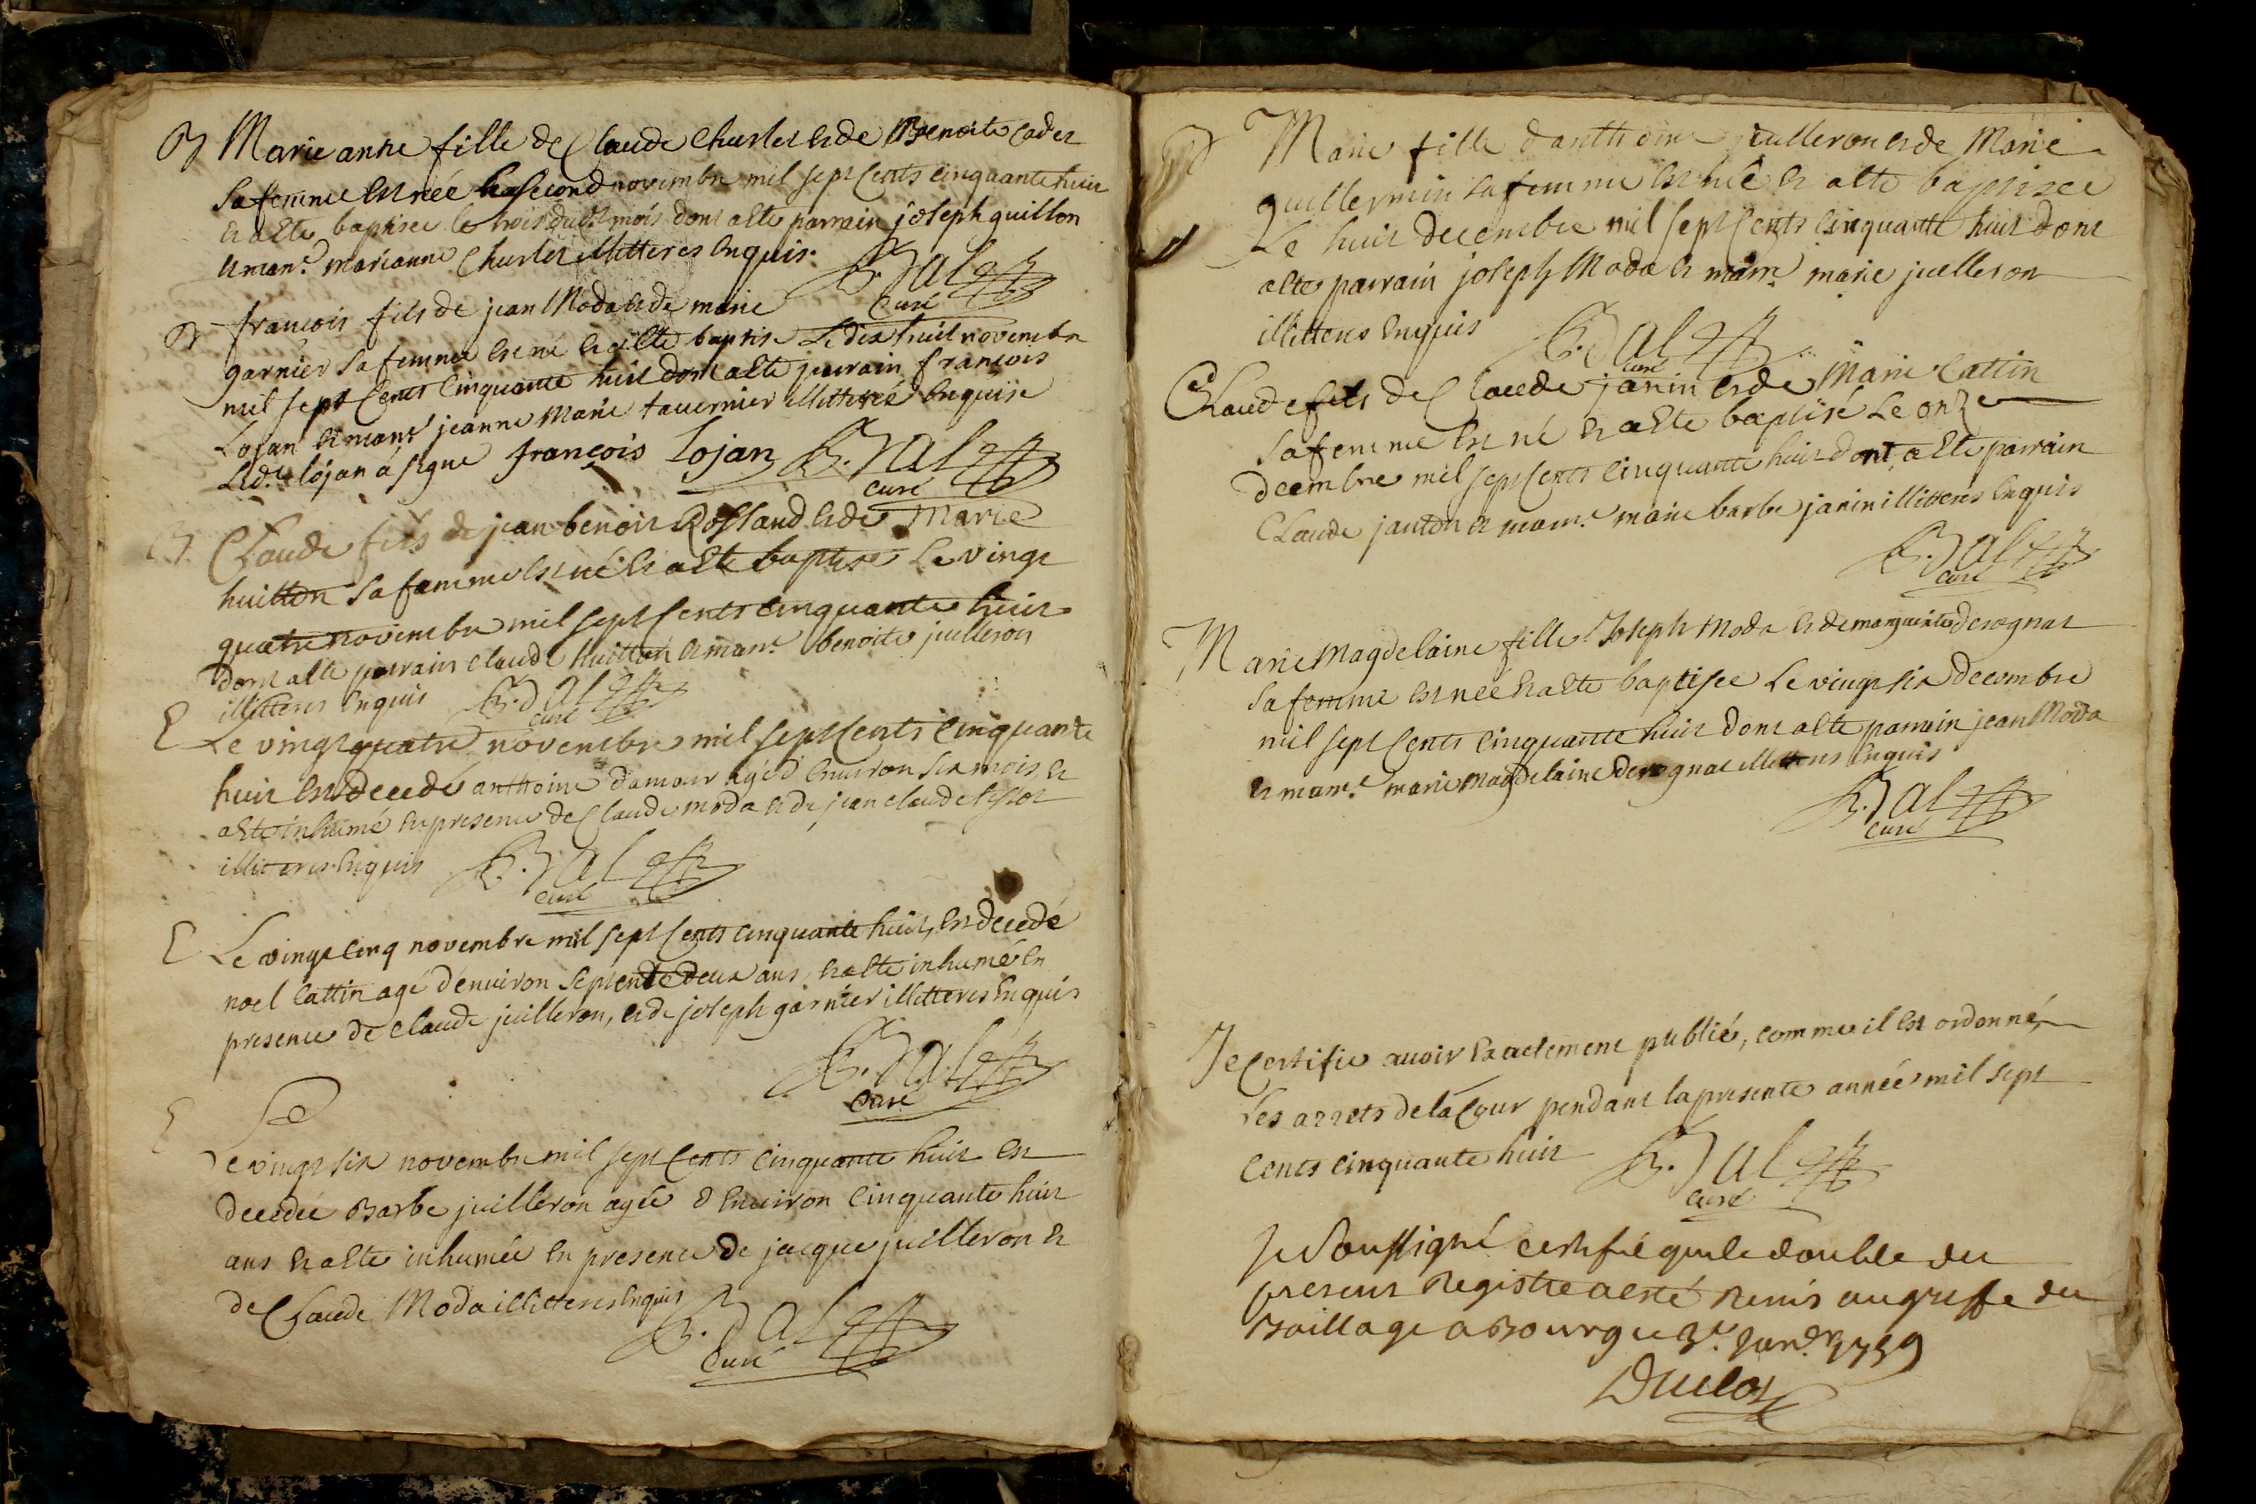 B Marie anne fille de Claude Churlet et de Benoite cadet
sa femme est née le second novembre mil sept cents cinquante huit
et a esté baptisée le trois dud. mois dont a esté parrain joseph guillon
et marr.e marianne Churlet illitteres enquis.
B. Dal
curé
B françois fils de jean Moda et de marie
garnier sa femme est né et a esté baptisé Le dix huit novembre
mil sept cents cinquante huit dont a esté parrain françois
Lojan et marr.e jeanne Marie tavernier illitterée enquise
led.t lojan a signé françois Lojan B. Dal
curé
B. Claude fils de jean benoit Rolland et de Marie
huitton sa femme est né et a esté baptisé Le vingt
quatre novembre mil sept cents cinquante huit
dont a esté parrain claude huitton et marr.e benoite juilleron
illitteres enquis B. Dal
curé
E Le vingt quatre novembre mil sept cents cinquante
huit est decedé anthoine damour agé d'environ six mois et
a esté inhumé en presence de Claude moda et de jean claude
illitteres enquis B. Dal
curé
E Le vingt cinq novembre mil sept cents cinquante huit, est decedé
noel Cattin agé d'environ septente deux ans, et a esté inhumé en
presence de claude juilleron, et de joseph garnier illitteres enquis
B. Dal
curé
E Le
Le vingt six novembre mil sept cents cinquante huit est
decedée Barbe juilleron agée d'environ cinquante huit
ans et a esté inhumée en presence de jacque juilleron et
de Claude Moda illitteres enquis
B. Dal
curé
B Marie fille d'anthoine juilleron et de Marie
guillermin sa femme est née et a esté baptisée
Le huit decembre mil sept cents cinquante huit dont
a esté parrain joseph Moda et marr.e marie juilleron
illitteres enquis B. Dal
curé
Claude fils de Claude janin et de Marie Cattin
sa femme est né et a esté baptisé Le onze
decembre mil sept cents cinquante huit dont a esté parrain
Claude janton et marr.e marie barbe janin illitteres enquis
B. Dal
curé
Marie Magdelaine fille Joseph Moda et de marguerite derognat
sa femme est née et a esté baptisée Le vingt six decembre
mil sept cents cinquante huit dont a esté parrain jean Moda
et marr.e marie Magdelaine derognat illitteres enquis
B. Dal
curé
Je Certifie avoir exactement publié, comme il est ordonné,
Les arrets de la Cour pendant la presente année mil sept
cents cinquante huit B. Dal
curé
Je soussigné certifie que le double du
present Registre a esté remis au greffe du
Baillage a Bourg ce 3.e Janv.r 1759
Duclos